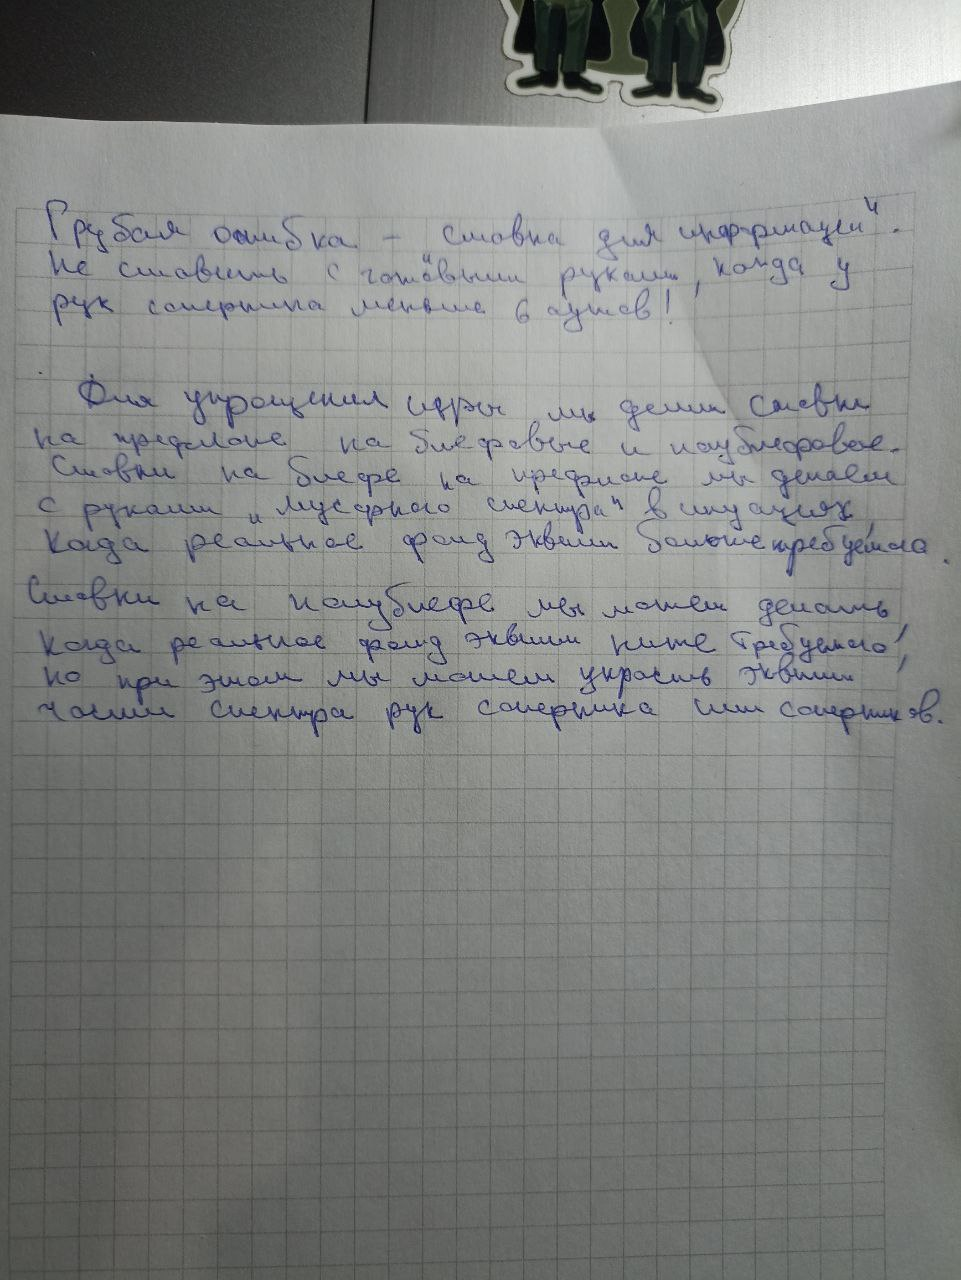 Грубая ошибка – ставка для информации".
Не ставить с "готовыми руками, когда у
рук соперника меньше 6 аутов!
Для упрощения игры мы делим ставки
на префлопе на блефовые и полублефовые.
Ставки на блефе на префлопе мы делаем
с руками "мусорного спектра" в ситуациях,
когда реальное фолд эквити больше требуемого.
Ставки на полублефе мы можем делать,
когда реальное фолд эквити ниже требуемого,
но при этом мы можем украсть эквити
части спектра рук соперника или соперников.